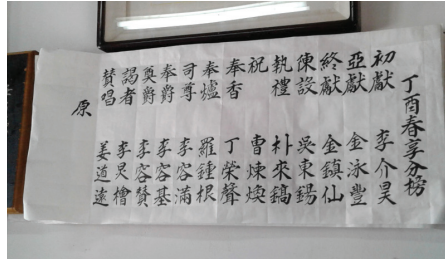 丁酉春享分榜
初獻 李介昊
亞獻 金泳豐
終獻 金鎮仙
陳設 吳東錫
執禮 朴來鎬
祝 曺煉煥
奉香 丁榮聲
奉爐 羅鍾根
司尊 李容滿
奉爵 李容基
奠爵 李容贊
謁者 李炅檜
贊唱 姜道遠
原